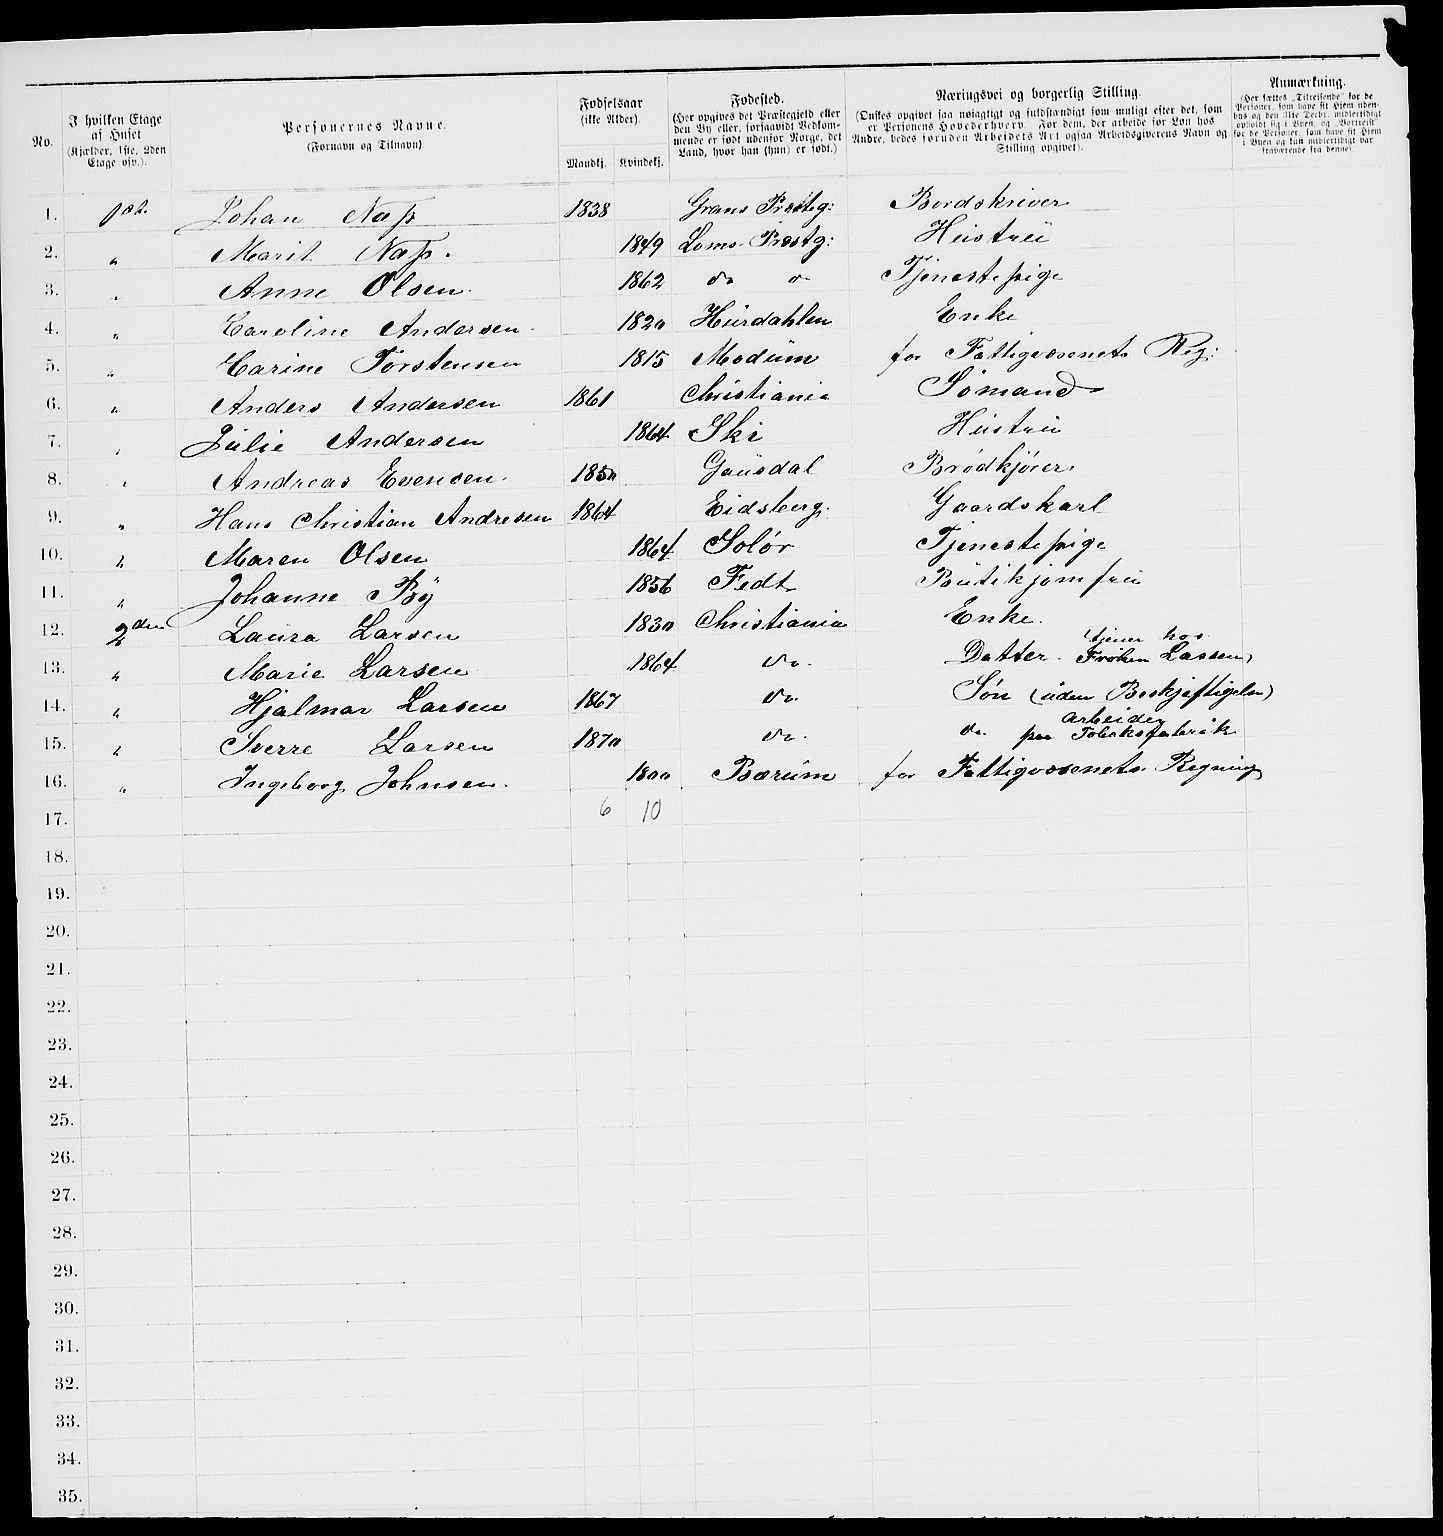 No.
I hvilken Etage af Huset (Kjælder, 1ste, 2den Etage osv.).
Personernes Navne. (Fornavn og Tilnavn)
Fødselsaar (ikke Alder).
Mandkj. Kvindekj.
Fødested. (Her opgives det Præstegjeld eller den By eller, forsaavidt Vedkommende er født udenfor Norge, det Land, hvor han (hun) er født.)
Næringsvei og borgerlig Stilling. (Ønskes opgivet saa nøiagtigt og fuldstændigt som muligt efter det, som er Personens Hovederhverv. For dem, der arbeide for Løn hos Andre, bedes foruden Arbeidets Art ogsaa Arbeidsgiverens Navn og Stilling opgivet).
Anmærkning. (Her sættes „Tilreisende“ for de Personer, som have sit Hjem udenbys og den 31te Decbr. midlertidigt opholdt sig i Byen, og „Bortreist“ for de Personer, som have sit Hjem i Byen og kun midlertidigt var fraværende fra denne).
1. 1st. Johan Næss 1838 Grans Præstg: Bordskriver
2. " Marit Næss. 1849 Loms Præstg: Hustru
3. " Anne Olsen. 1862 do do Tjenestepige
4. " Caroline Andersen. 1820 Hurdahlen Enke
5. " Carine Torstensen 1815 Modum for Fattigvæsenets Reg:
6. " Anders Andersen 1861 Christiania Sømand
7. " Julie Andersen 1864 Ski Hustru
8. " Andreas Evensen. 1850 Gausdal Brødkjører
9. " Hans Christian Andresen 1864 Eidsberg. Gaardskarl
10. " Maren Olsen 1864 Solør Tjenestepige
11. " Johanne By 1856 Fedt Butikjomfru
12. 2den Laura Larsen 1830 Christiania Enke.
13. " Marie Larsen 1864 do. Datter. tjener hos Frøken Lassen,
14. " Hjalmar Larsen 1867 do. Søn (uden Beskjæftigelse)
15. " Sverre Larsen 1870 do. do. arbeider paa Tobaksfabrik
16. " Ingeborg Johnsen. 1800 Bærum for Fattigvæsenets Regning
17. 6 10
18.
19.
20.
21.
22.
23.
24.
25.
26.
27.
28.
29.
30.
31.
32.
33.
34.
35.